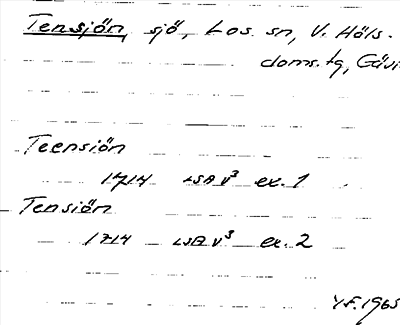 Tensjön, sjö, Los sn, V. Häls.
doms. tg, Gävl
Teensiön
1714 LSA V³ ex. 1
Tensiön
1714 LSA V³ ex. 2
Y.F. 1965